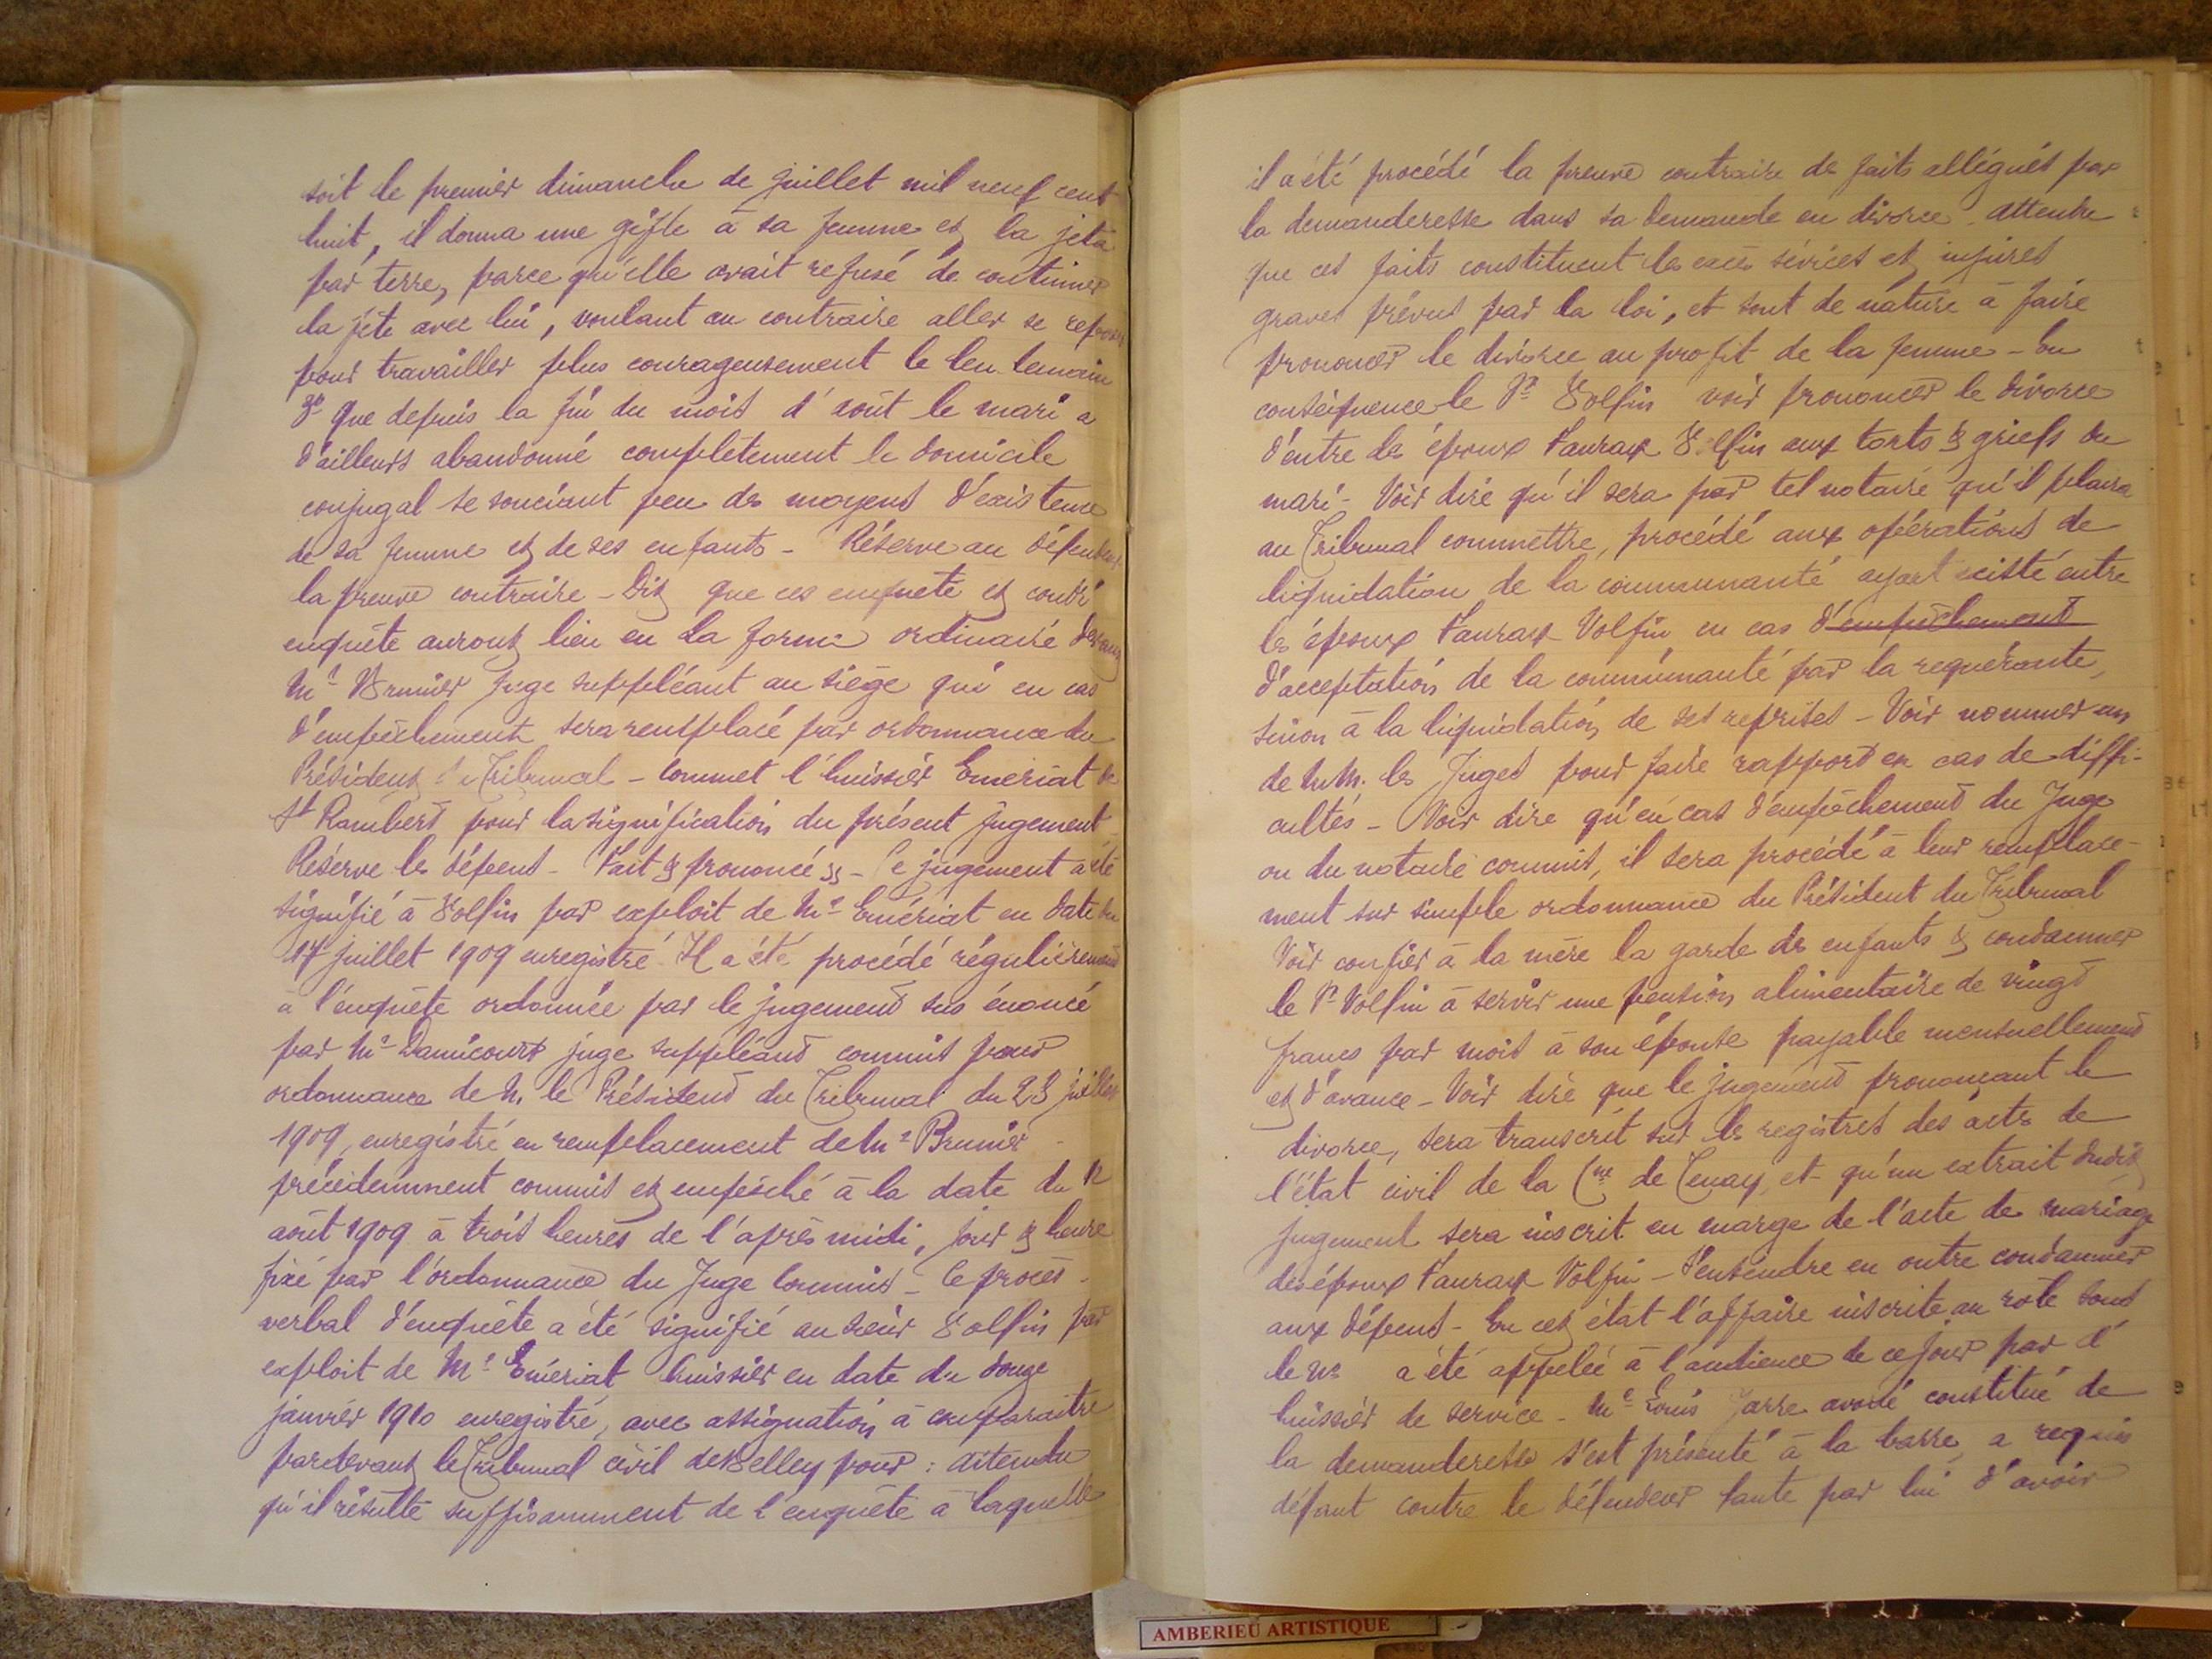 soit le premier dimanche de Juillet mil neuf cent
huit, il donna une gifle à sa femme et la jeta
par terre, parce qu'elle avait refusé de continuer
la fête avec lui, voulant au contraire aller se reposer
pour travailler plus courageusement le len demain
3° Que depuis la fin du mois d'août le mari a
d'ailleurs abandonné complètement le domicile
conjugal se souciant peu des moyens d'existence
de sa femme et de ses enfants - Réserve au défendeur
la preuve contraire - Dit que ces enquête et contre
enquête auront lieu en la forme ordinaire devant
Mr Brunier Juge suppléant au siège qui en cas
d'empêchement sera remplacé par ordonnance du
Président du Tribunal - Commet l'huissier Emeriat de
St Rambert pour la signification du présent jugement
Réserve les dépens - Fait & prononcé » - Ce jugement a été
signifié à Volfin par exploit de Me Emériat en date du
17 juillet 1909 enregistré. Il a été procédé régulièrement
à l'enquête ordonnée par le jugement sus énoncé
par Mr Damicourt juge suppléant commis par
ordonnance de M. le Président du Tribunal du 23 juillet
1909, enregistré en remplacement de Mr Brunier
précédemment commis et empêché à la date du 12
août 1909 à trois heures de l'après midi, jour & heure
fixé par l'ordonnance du Juge Commis - Ce procès-
verbal d'enquête a été signifié au sieur Volfin par
exploit de Me Emériat huissier en date du douze
janvier 1910 enregistré, avec assignation à comparaitre
pardevant le Tribunal civil de Belley pour : attendu
qu'il résulte suffisamment de l'enquête à laquelle
il a été procédé la preuve contraire de faits allégués par
la demanderesse dans sa demande en divorce - Attendu
que ces faits constituent les excès sévices et injures
graves prévus par la loi, et sont de nature à faire
prononcer le divorce au profit de la femme - En
conséquence le Sr Volfin voir prononcer le divorce
d'entre les époux Faurax Volfin aux torts & griefs du
mari - Voir dire qu'il sera par tel notaire qu'il plaira
au Tribunal commettre, procédé aux opérations de
liquidation de la communauté ayant existé entre
les époux Faurax Volfin, en cas d'empêchement
d'acceptation de la communauté par la requérante,
sinon à la liquidation de ses reprises - Voir nommer un
de M.M. les Juges pour faire rapport en cas de diffi-
cultés - Voir dire qu'en cas d'empêchement du Juge
ou du notaire commis, il sera procédé à leur remplace-
ment sur simple ordonnance du Président du Tribunal
Voir confier à la mère la garde des enfants & condamner
le Sr Volfin à servir une pension alimentaire de vingt
francs par mois à son épouse payable mensuellement
et d'avance - Voir dire que le jugement prononçant le
divorce, sera transcrit sur les registres des actes de
l'état civil de la Cne de Tenay, et qu'un extrait dudit
jugement sera inscrit en marge de l'acte de mariage
des époux Faurax Volfin - S'entendre en outre condamner
aux dépens - En cet état l'affaire inscrite au rôle sous
le No a été appelée à l'audience de ce jour par l'
huissier de service - Me Louis Jarre avoué constitué de
la demanderesse s'est présenté à la barre, a requis
défaut contre le défendeur faute par lui d'avoir
AMBERIEU ARTISTIQUE